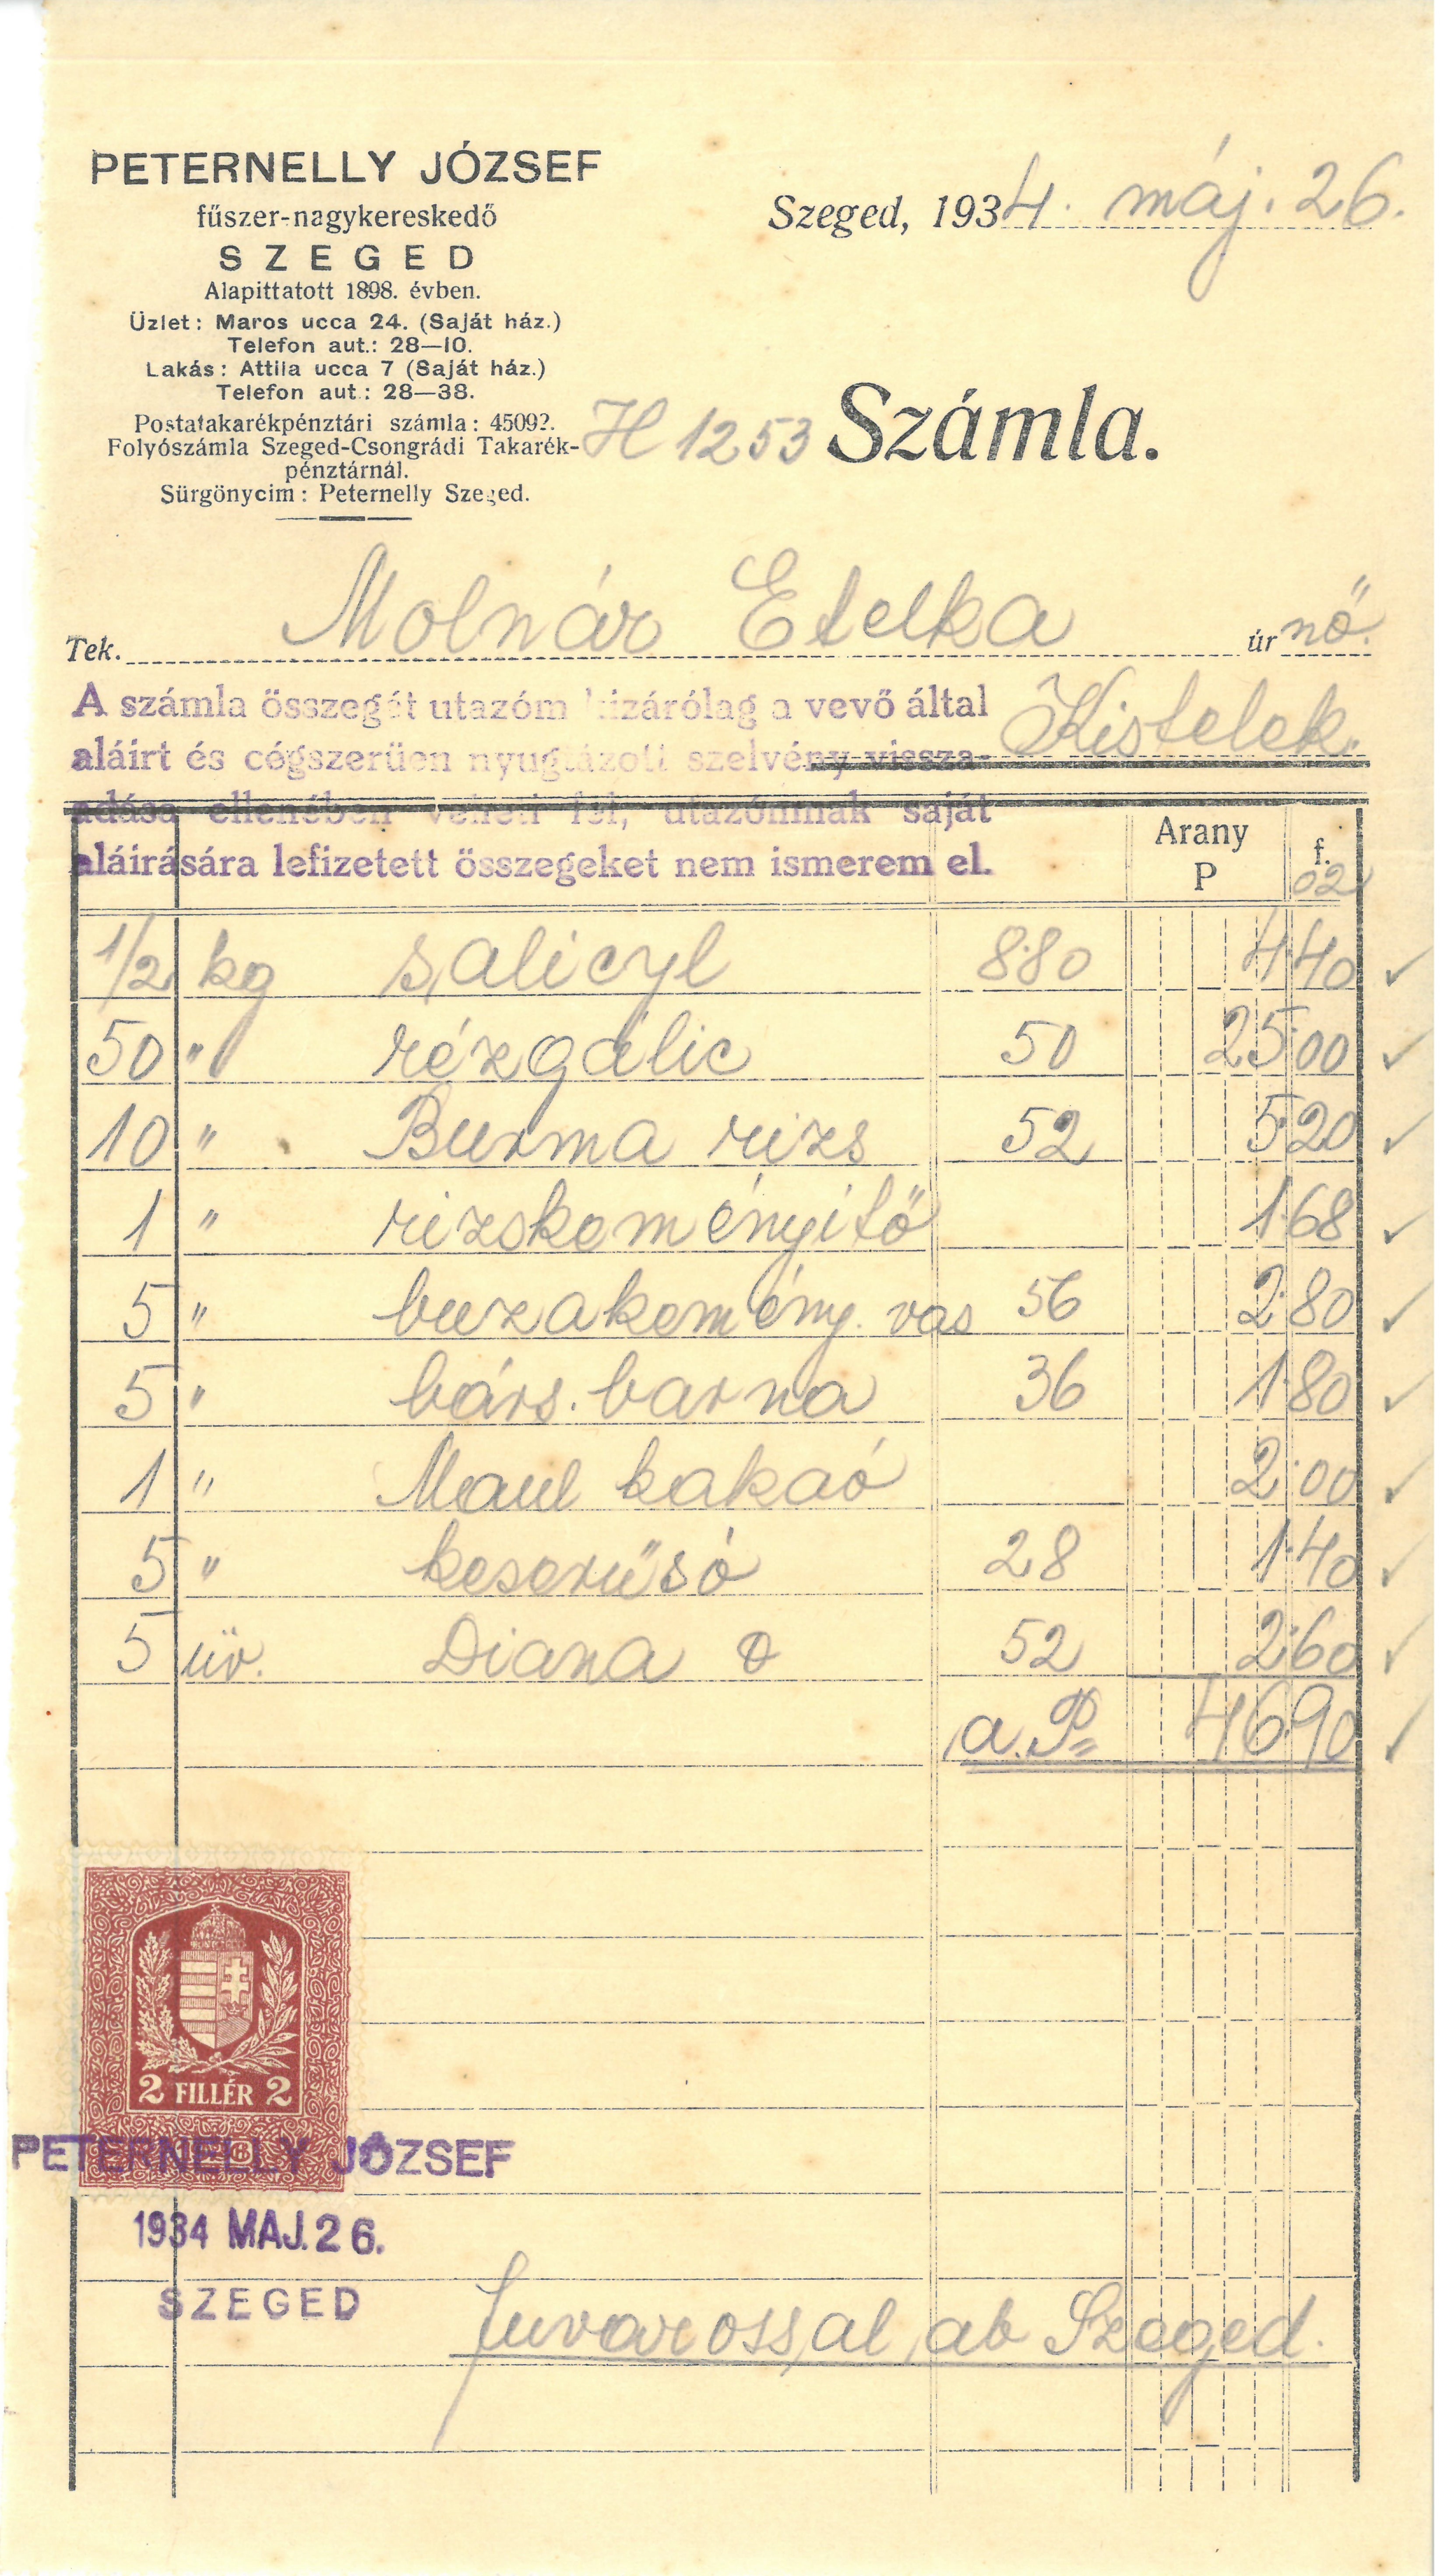 PETERNELLY JÓZSEF
fűszer-nagykereskedő
SZEGED
Alapittatott 1898. évben.
Üzlet: Maros ucca 24. (Saját ház.)
Telefon aut.: 28—10.
Lakás: Attila ucca 7 (Saját ház.)
Telefon aut.: 28—38.
Postatakarékpénztári számla: 4509?.
Folyószámla Szeged-Csongrádi Takarék-
pénztárnál.
Sürgönycim: Peternelly Szeged.
Szeged, 1934. máj. 26.
H 1253 Számla.
Tek. Molnár Etelka úrnő.
Kistelek.
A számla összegét utazóm kizárólag a vevő által
aláirt és cégszerüen nyugtázott szelvény vissza-
adása ellenében veheti fel, utazómnak saját
aláirására lefizetett összegeket nem ismerem el.
Arany
P f.
02
1/2 kg salicyl 8·80 4·40
50 " rézgálic 50 25·00
10 " Burma rizs 52 5·20
1 " rizskeményitő 1·68
5 " buzakemény. vas 56 2·80
5 " bárs. barna 36 1·80
1 " Maul kakaó 2·00
5 " keserűsó 28 1·40
5 üv. Diana 52 2·60
a. P= 46·90
2 FILLÉR 2
PETERNELLY JÓZSEF
1934 MAJ. 26.
SZEGED
fuvarossal ab Szeged.